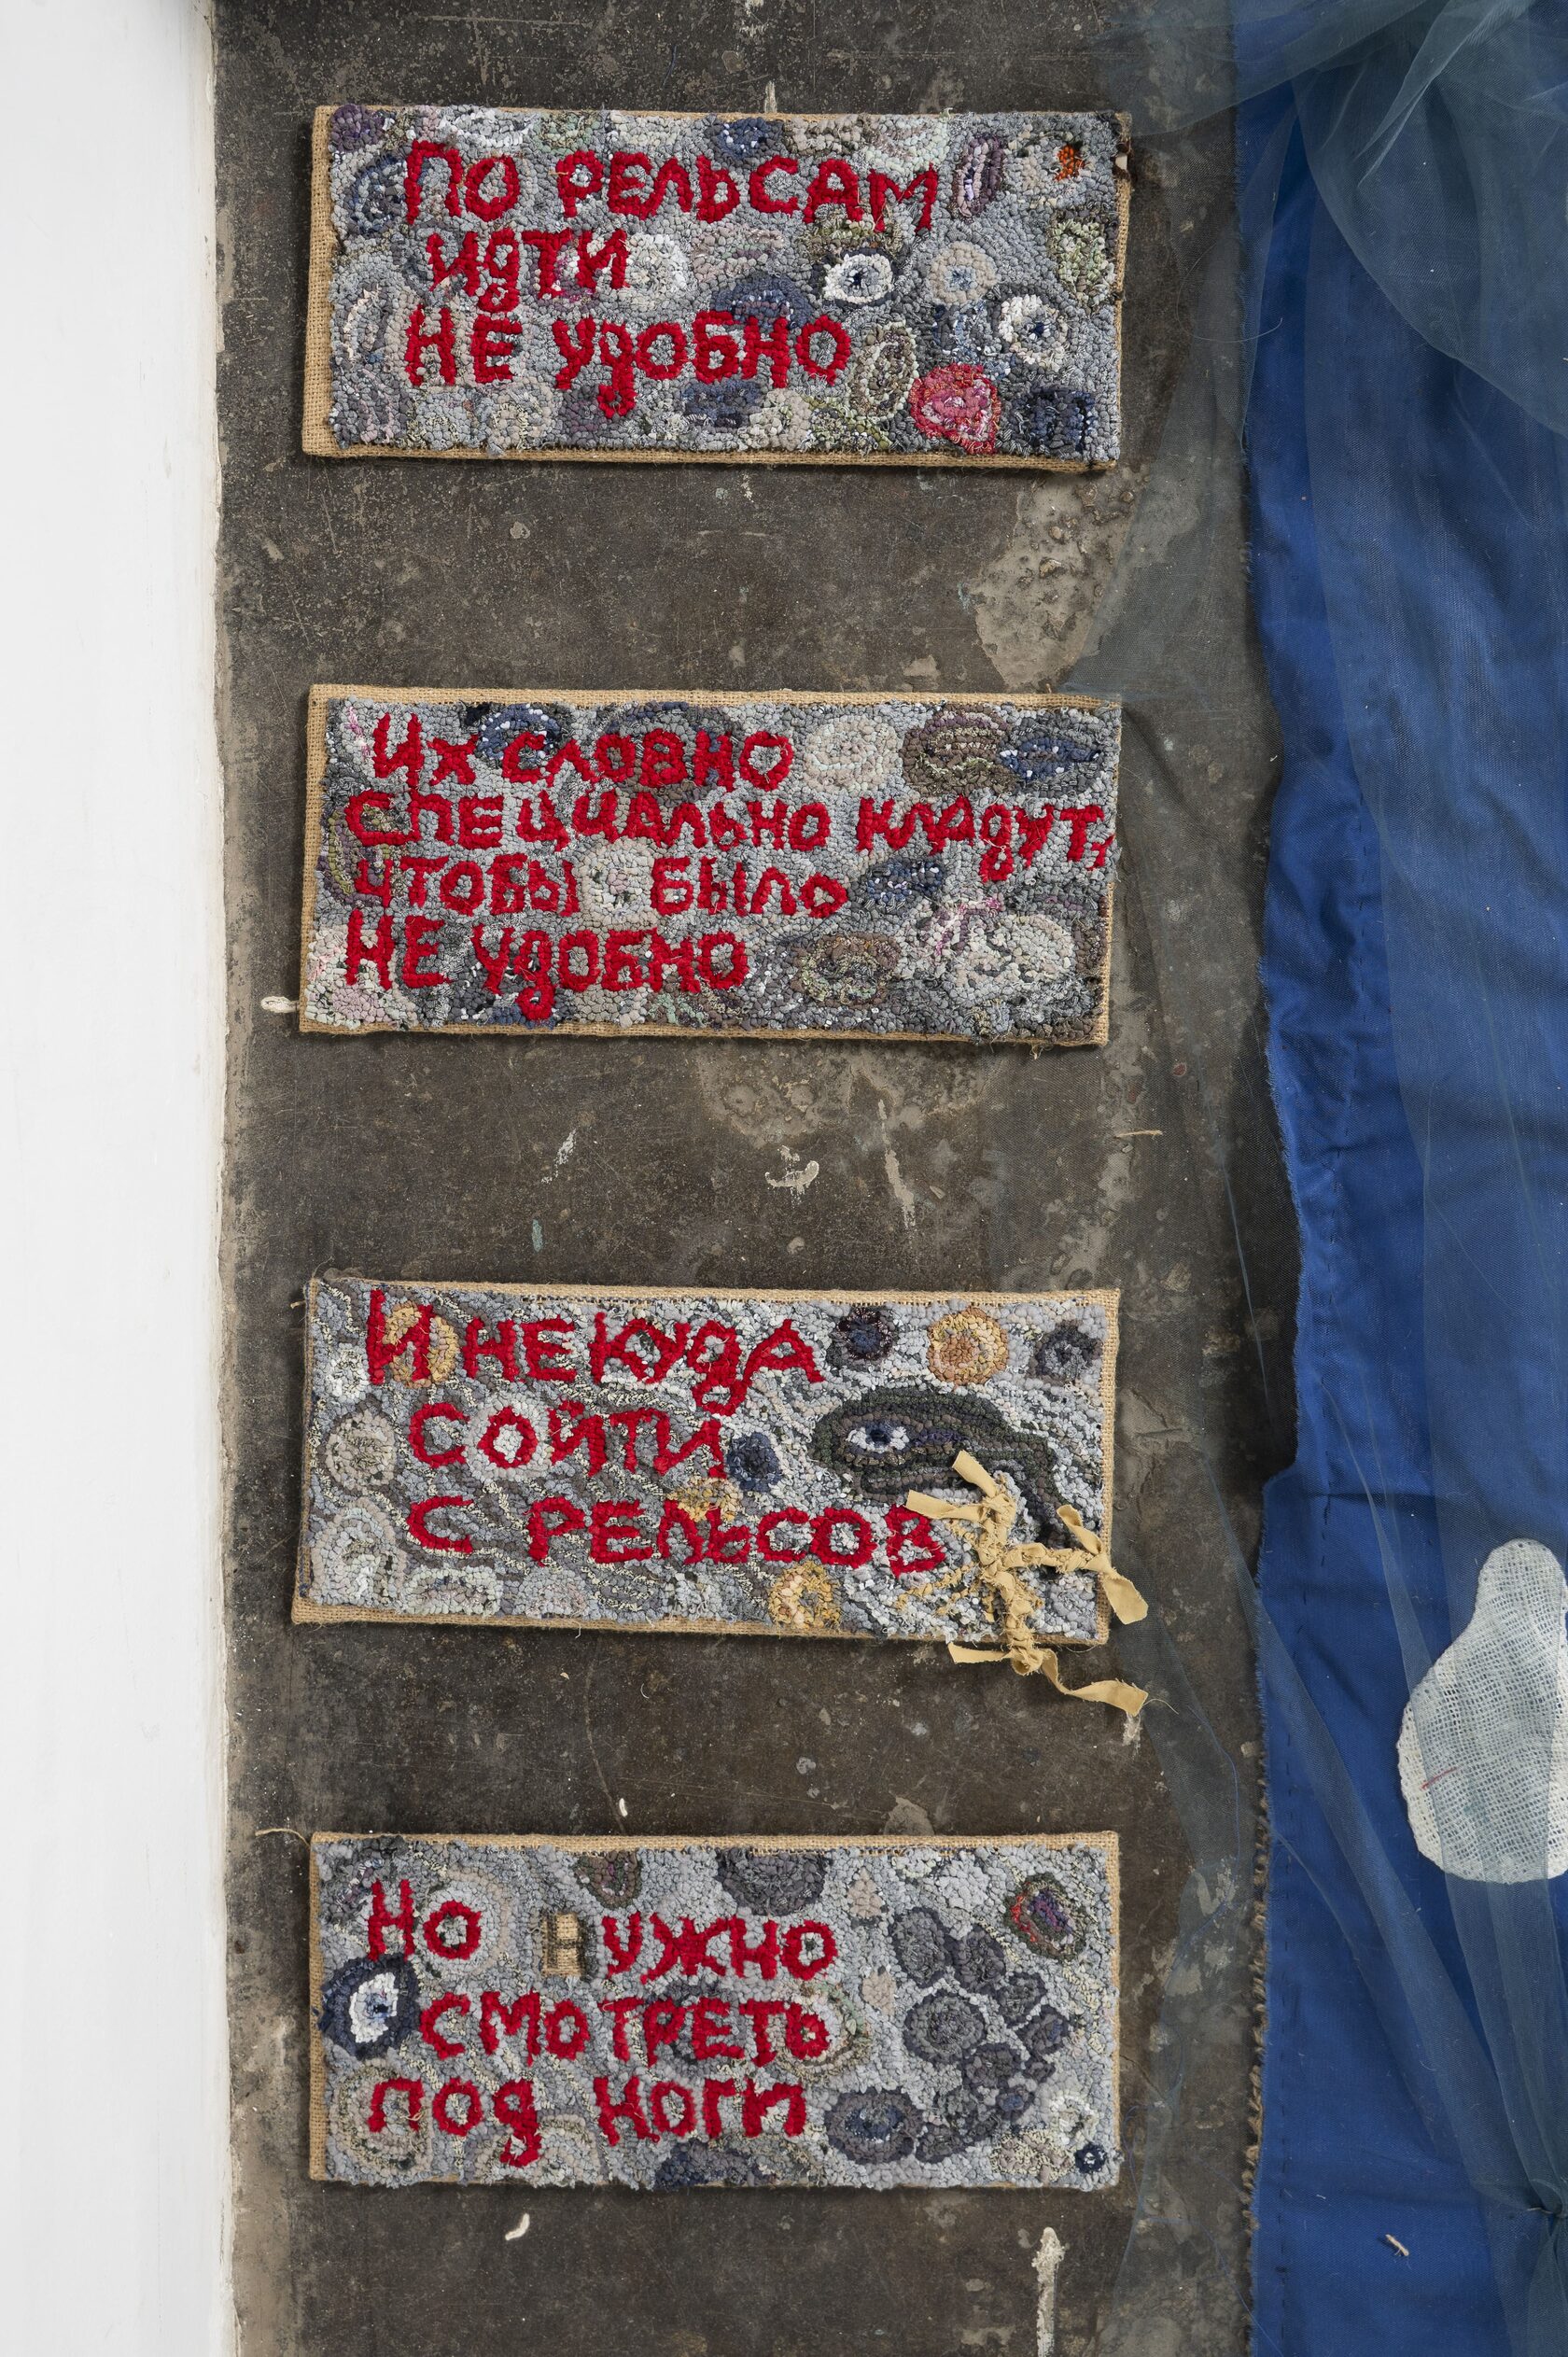 По РЕЛЬСАМ
идти
НЕ УДОБНО
Их словно
СПЕЦИАЛЬНО КЛАДУТ,
ЧТОБЫ БЫЛО
НЕ УДОБНО
И НЕКУДА
СОЙТИ
С РЕЛЬСОВ
Но НУЖНО
СМОТРЕТЬ
под НОГИ